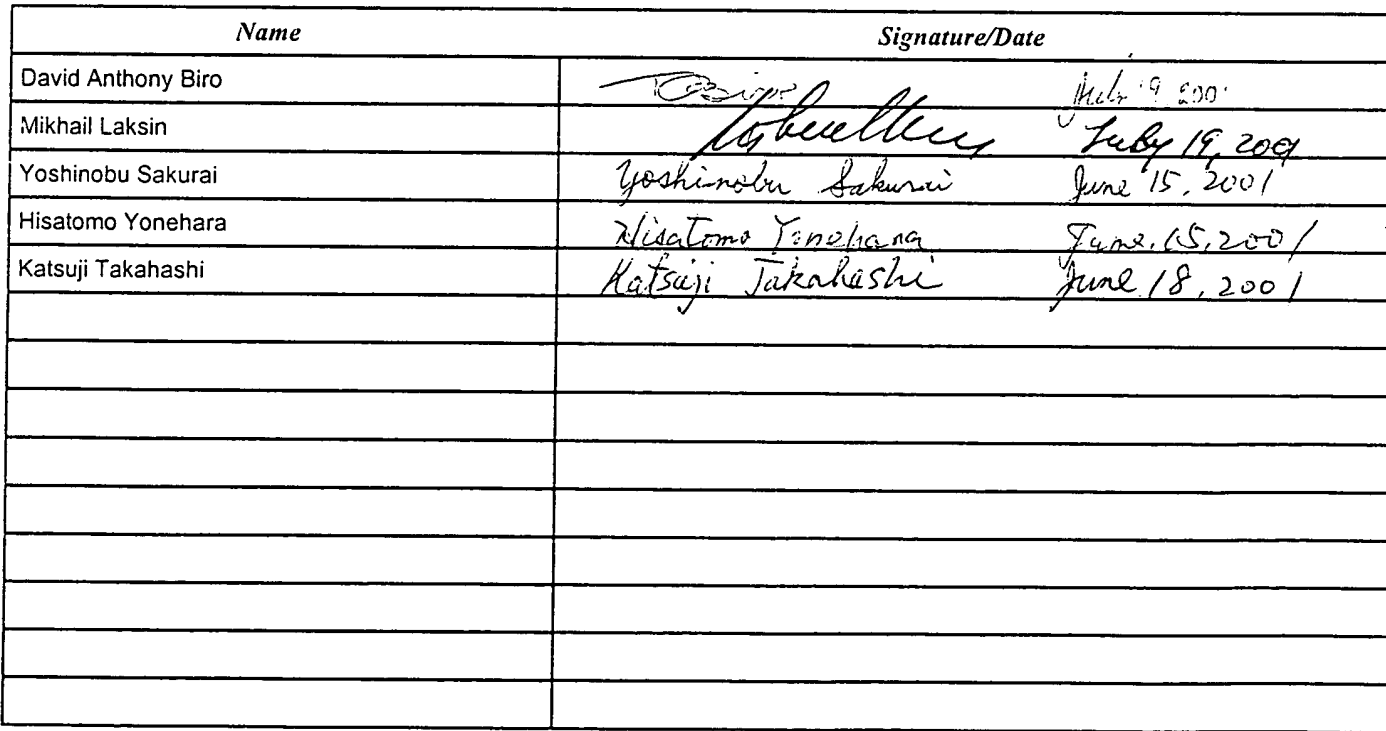 Name Signature/Date
David Anthony Biro
Mikhail Laksin July 19, 2001
Yoshinobu Sakurai Yoshinobu Sakurai June 15, 2001
Hisatomo Yonehara Hisatomo Yonehara June, 15, 2001
Katsuji Takahashi Katsuji Takahashi June 18, 2001